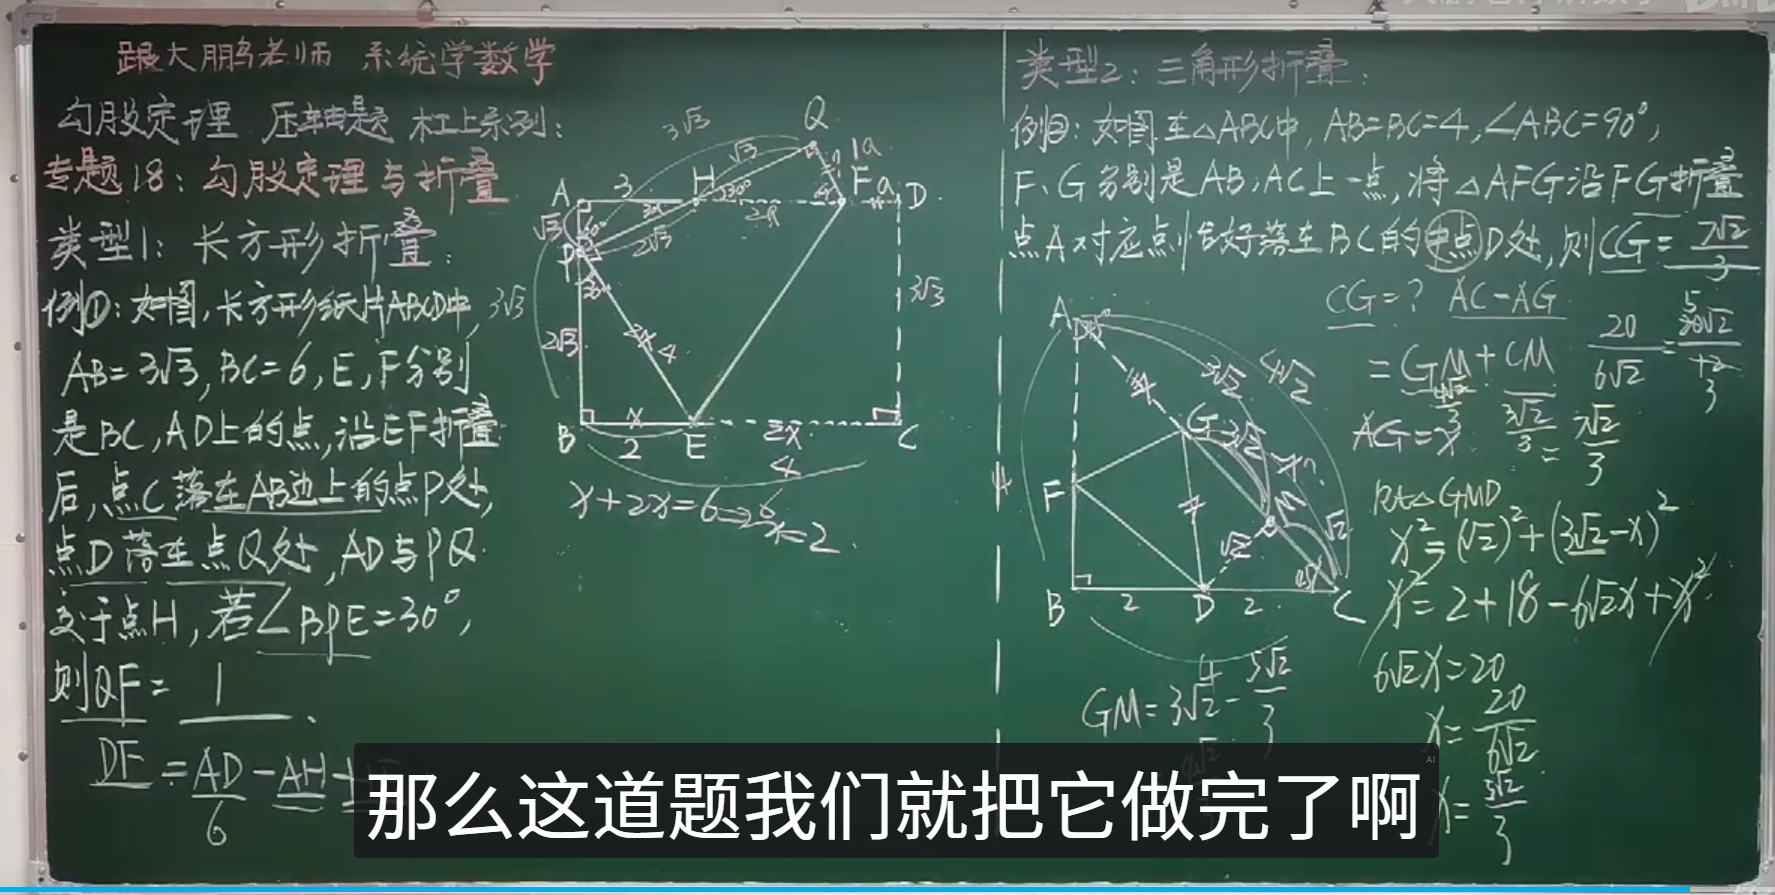 跟大鹏老师 系统学数学
勾股定理 压轴题 杠上系列:
专题18: 勾股定理与折叠
类型1: 长方形折叠:
例①: 如图,长方形纸片ABCD中,
AB=3√3, BC=6, E,F分别
是BC,AD上的点,沿EF折叠
后,点C落在AB边上的点P处,
点D落在点Q处,AD与PQ
交于点H,若∠BPE=30°,
则QF= 1 .
DF = AD - AH -
6
3√3
Q
√3
1a
A
3
H
F
a
D
30°
2a
√3
60°
2√3
P
30°
3√3
3√3
2√3
2x
4
B
x
E
2x
C
2
4
x+2x=6⇒x=2.
类型2: 三角形折叠:
例②: 如图,在△ABC中,AB=BC=4,∠ABC=90°,
F、G分别是AB,AC上一点,将△AFG沿FG折叠
点A对应点恰好落在BC的中点D处,则CG= 7√2/3
CG=? AC-AG
= GM + CM
4√2/3
3√2/3 = 7√2/3
20/6√2 = 
AG=x
Rt△GMD
x²=(√2)²+(3√2-x)²
x²=2+18-6√2x+x².
6√2x=20
x=20/6√2
x=5√2/3
A
45°
3√2
4√2
x
G
3√2
F
4
x
M
√2
√2
45°
B
2
D
2
C
4
GM=3√2-5√2/3
4√2
那么这道题我们就把它做完了啊
AI